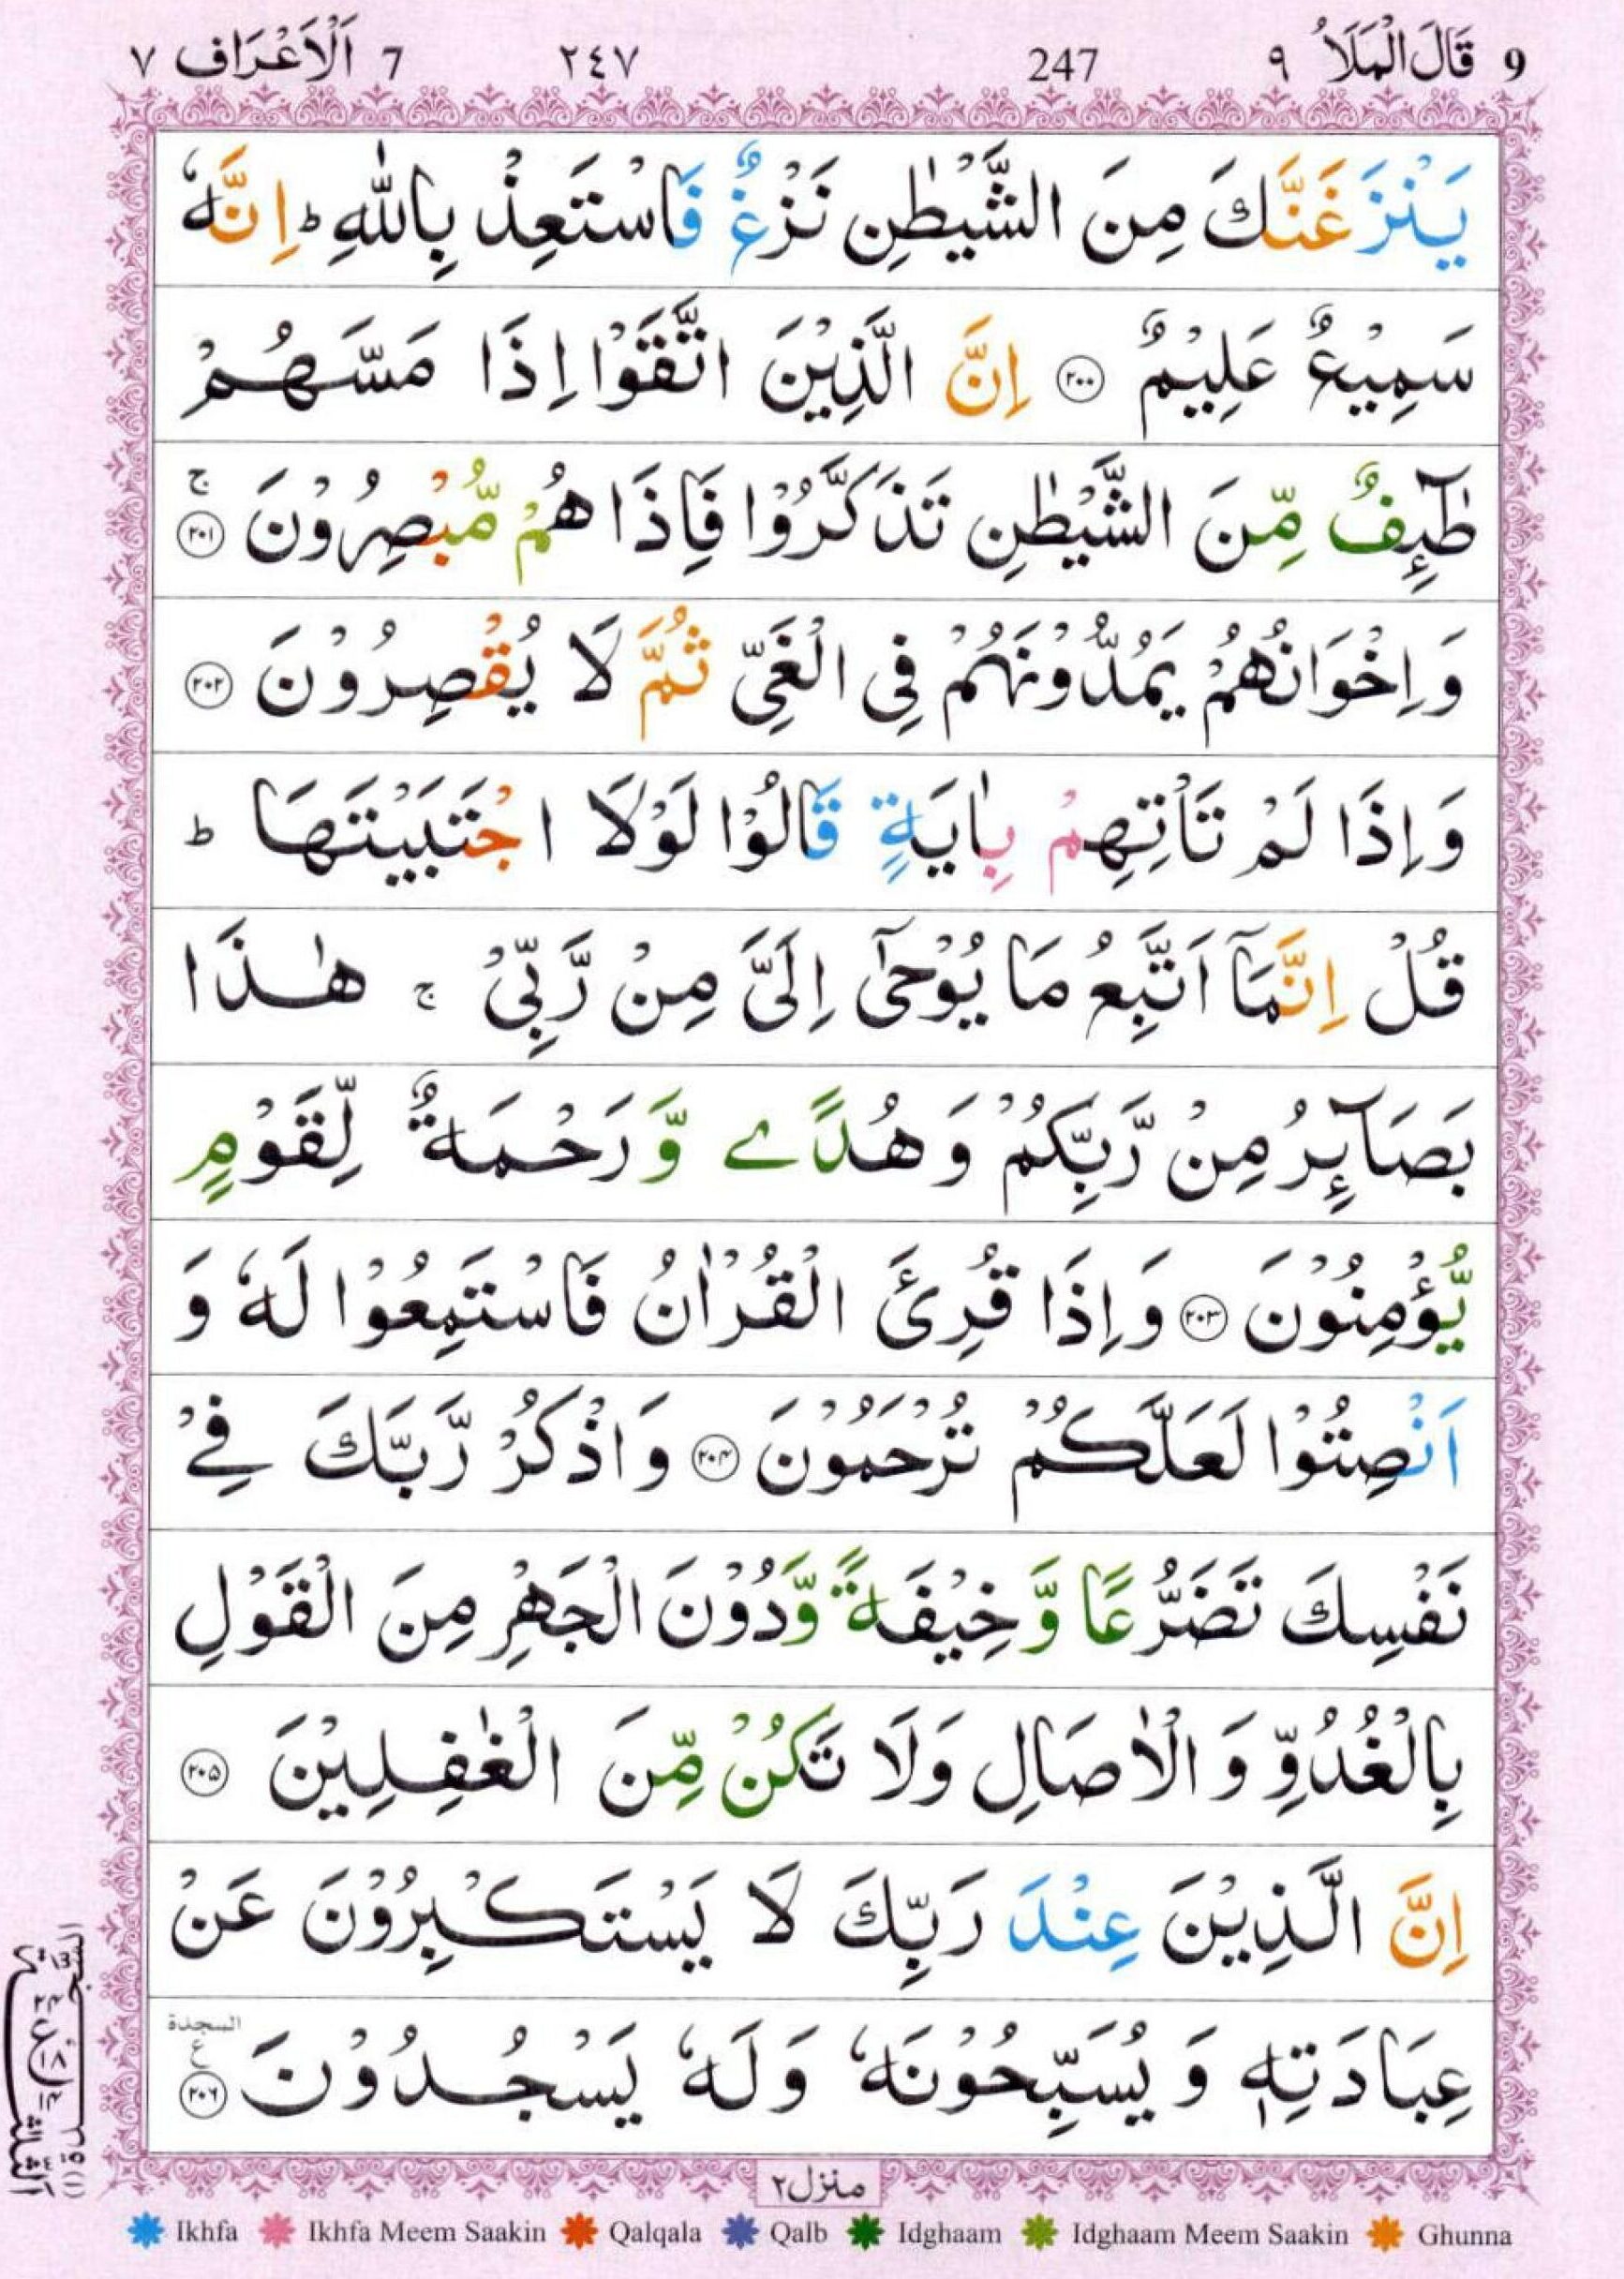 9 قَالَ الْمَلَاُ ٩ 247 ٢٤٧ 7 اَلْاَعْرَاف ٧
يَنْزَغَنَّكَ مِنَ الشَّيْطٰنِ نَزْغٌ فَاسْتَعِذْ بِاللّٰهِ ؕ اِنَّهٗ
سَمِيْعٌ عَلِيْمٌ ﴿۲۰۰﴾ اِنَّ الَّذِيْنَ اتَّقَوْا اِذَا مَسَّهُمْ
طٰٓئِفٌ مِّنَ الشَّيْطٰنِ تَذَكَّرُوْا فَاِذَا هُمْ مُّبْصِرُوْنَ ﴿۲۰۱﴾ ۚ
وَاِخْوَانُهُمْ يَمُدُّوْنَهُمْ فِى الْغَىِّ ثُمَّ لَا يُقْصِرُوْنَ ﴿۲۰۲﴾
وَاِذَا لَمْ تَاْتِهِمْ بِاٰيَةٍ قَالُوْا لَوْلَا اجْتَبَيْتَهَا ؕ
قُلْ اِنَّمَاۤ اَتَّبِعُ مَا يُوْحٰٓى اِلَىَّ مِنْ رَّبِّىْ ۚ هٰذَا
بَصَآئِرُ مِنْ رَّبِّكُمْ وَهُدًى وَّرَحْمَةٌ لِّقَوْمٍ
يُّؤْمِنُوْنَ ﴿۲۰۳﴾ وَاِذَا قُرِئَ الْقُرْاٰنُ فَاسْتَمِعُوْا لَهٗ وَ
اَنْصِتُوْا لَعَلَّكُمْ تُرْحَمُوْنَ ﴿۲۰۴﴾ وَاذْكُرْ رَّبَّكَ فِىْ
نَفْسِكَ تَضَرُّعًا وَّخِيْفَةً وَّدُوْنَ الْجَهْرِ مِنَ الْقَوْلِ
بِالْغُدُوِّ وَالْاٰصَالِ وَلَا تَكُنْ مِّنَ الْغٰفِلِيْنَ ﴿۲۰۵﴾
اِنَّ الَّذِيْنَ عِنْدَ رَبِّكَ لَا يَسْتَكْبِرُوْنَ عَنْ
عِبَادَتِهٖ وَيُسَبِّحُوْنَهٗ وَلَهٗ يَسْجُدُوْنَ ﴿۲۰۶﴾ السجدة ع
منزل ٢
Ikhfa Ikhfa Meem Saakin Qalqala Qalb Idghaam Idghaam Meem Saakin Ghunna